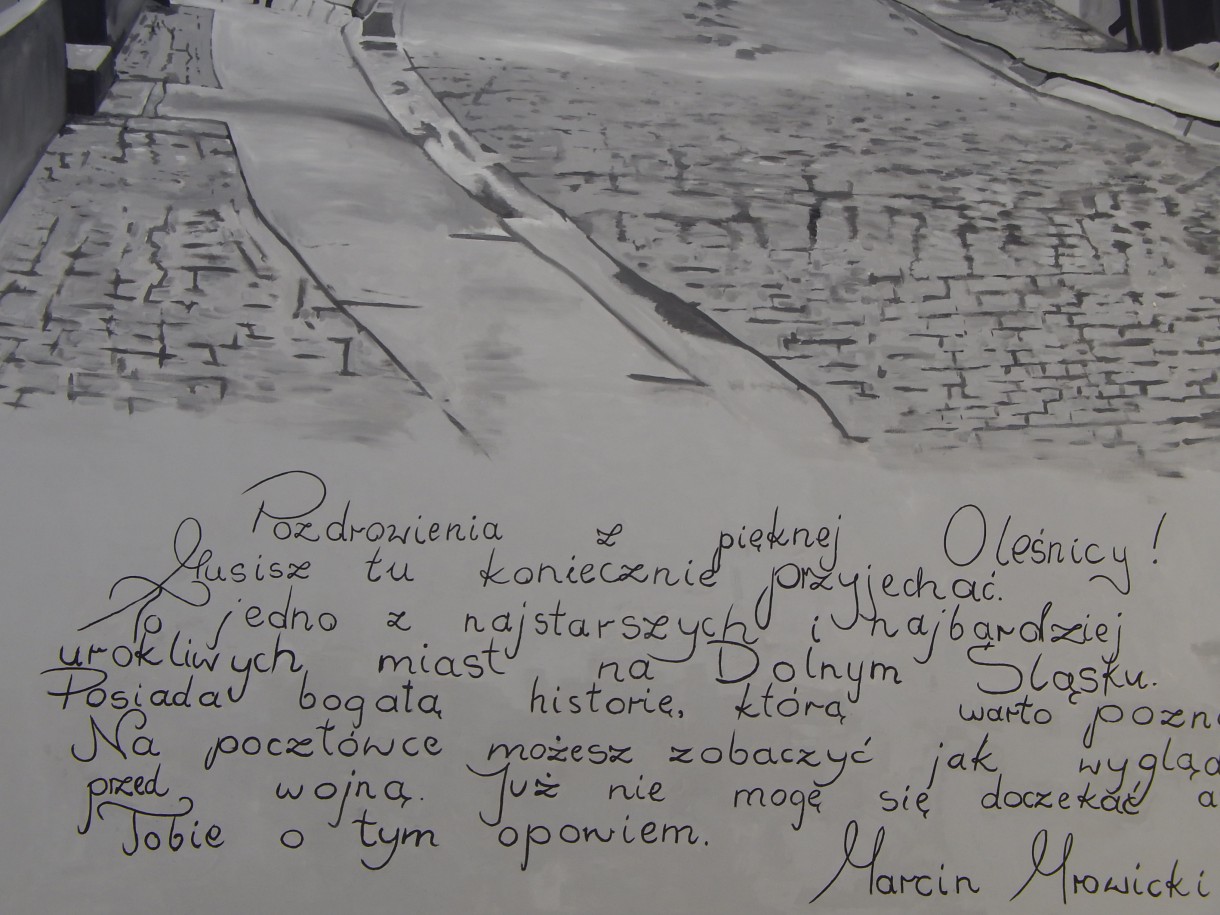 Pozdrowienia z pięknej Oleśnicy!
Musisz tu koniecznie przyjechać.
To jedno z najstarszych i najbardziej
urokliwych miast na Dolnym Śląsku.
Posiada bogatą historię, którą warto pozn
Na pocztówce możesz zobaczyć jak wygląd
przed wojną. Już nie mogę się doczekać a
Tobie o tym opowiem.
Marcin Mrowicki